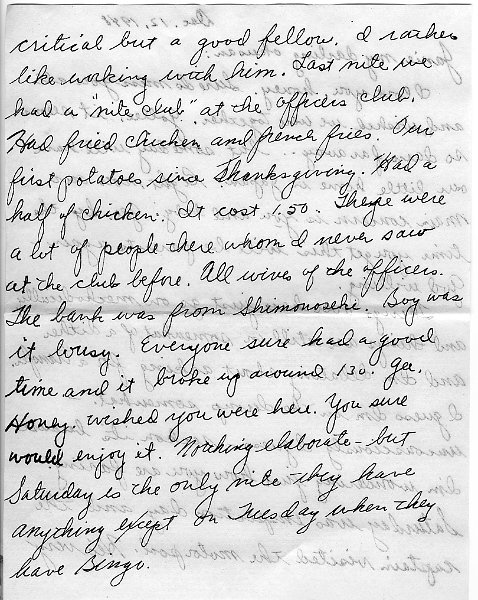 critical but a good fellow. I rather
like working with him. Last nite we
had a "nite club" at the officers club.
Had fried chicken and french fries. Our
first potatoes since Thanksgiving. Had a
half of chicken. It cost 1.50. There were
a lot of people there whom I never saw
at the club before. All wives of the officers.
The bank was from Shimonoseki. Boy was
it lousy. Everyone sure had a good
time and it broke up around 130. Gee.
Honey, wished you were here. You sure
would enjoy it. Nothing elaborate - but
Saturday is the only nite they have
anything except on Tuesday when they
have Bingo.